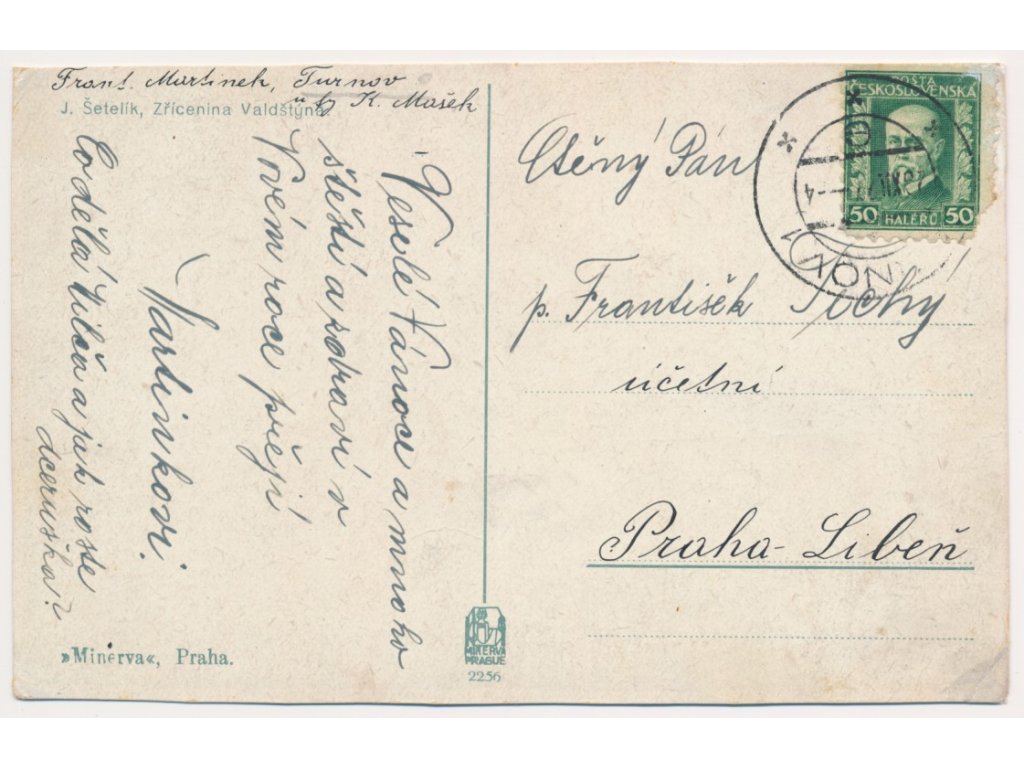 Frant. Martinek, Turnov
u fy K. Mašek
J. Šetelík, Zřícenina Valdštýna
Veselé Vánoce a mnoho
štěstí a zdraví v
Novém roce přejí
Martinkovi.
Co dělá Vilča a jak roste
dceruška?
»Minerva«, Praha.
MINERVA
PRAGUE
2256
POSTA
ČESKOSLOVENSKÁ
50 HALÉŘŮ 50
Ctěný Pán
p. František Tichý
účetní
Praha-Libeň